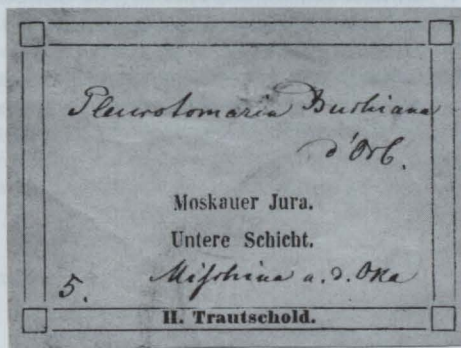 Pleurotomaria Buchiana
d'Orb.
Moskauer Jura.
Untere Schicht.
5. a. d. Oka
H. Trautschold.